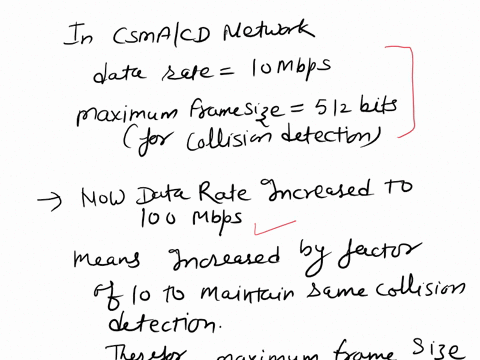 In CSMA/CD Network
data rate = 10 Mbps
maximum frame size = 512 bits
(for collision detection)
→ Now Data Rate Increased to
100 Mbps
means increased by factor
of 10 to maintain same collision
detection.
Therefor maximum frame size